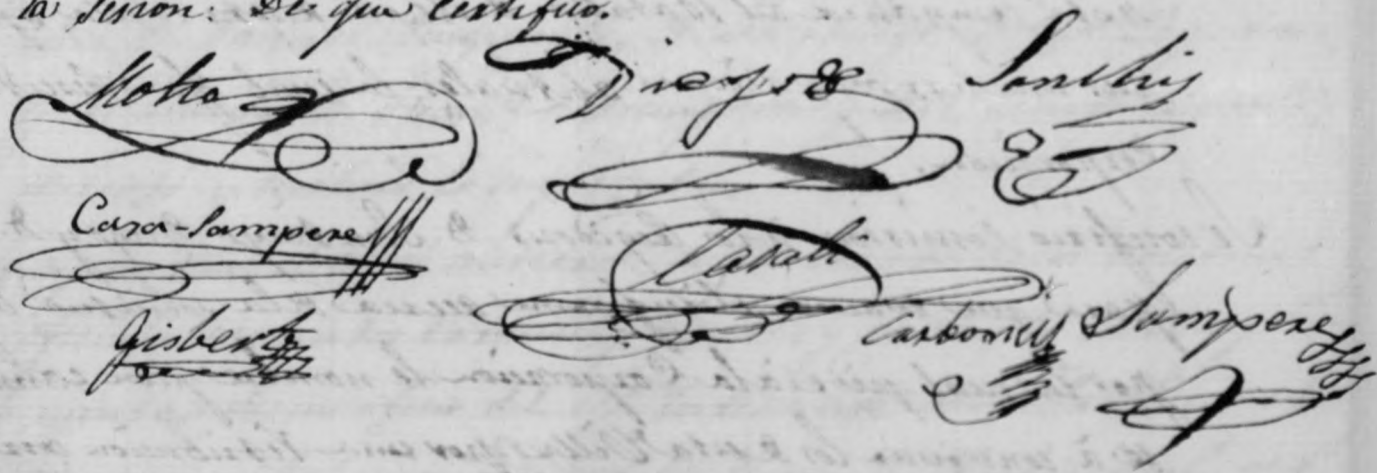 la sesion: De que certifico.
Molto Diego Sanchis
Casa-Sampere
Gisbert Carbonell Sampere